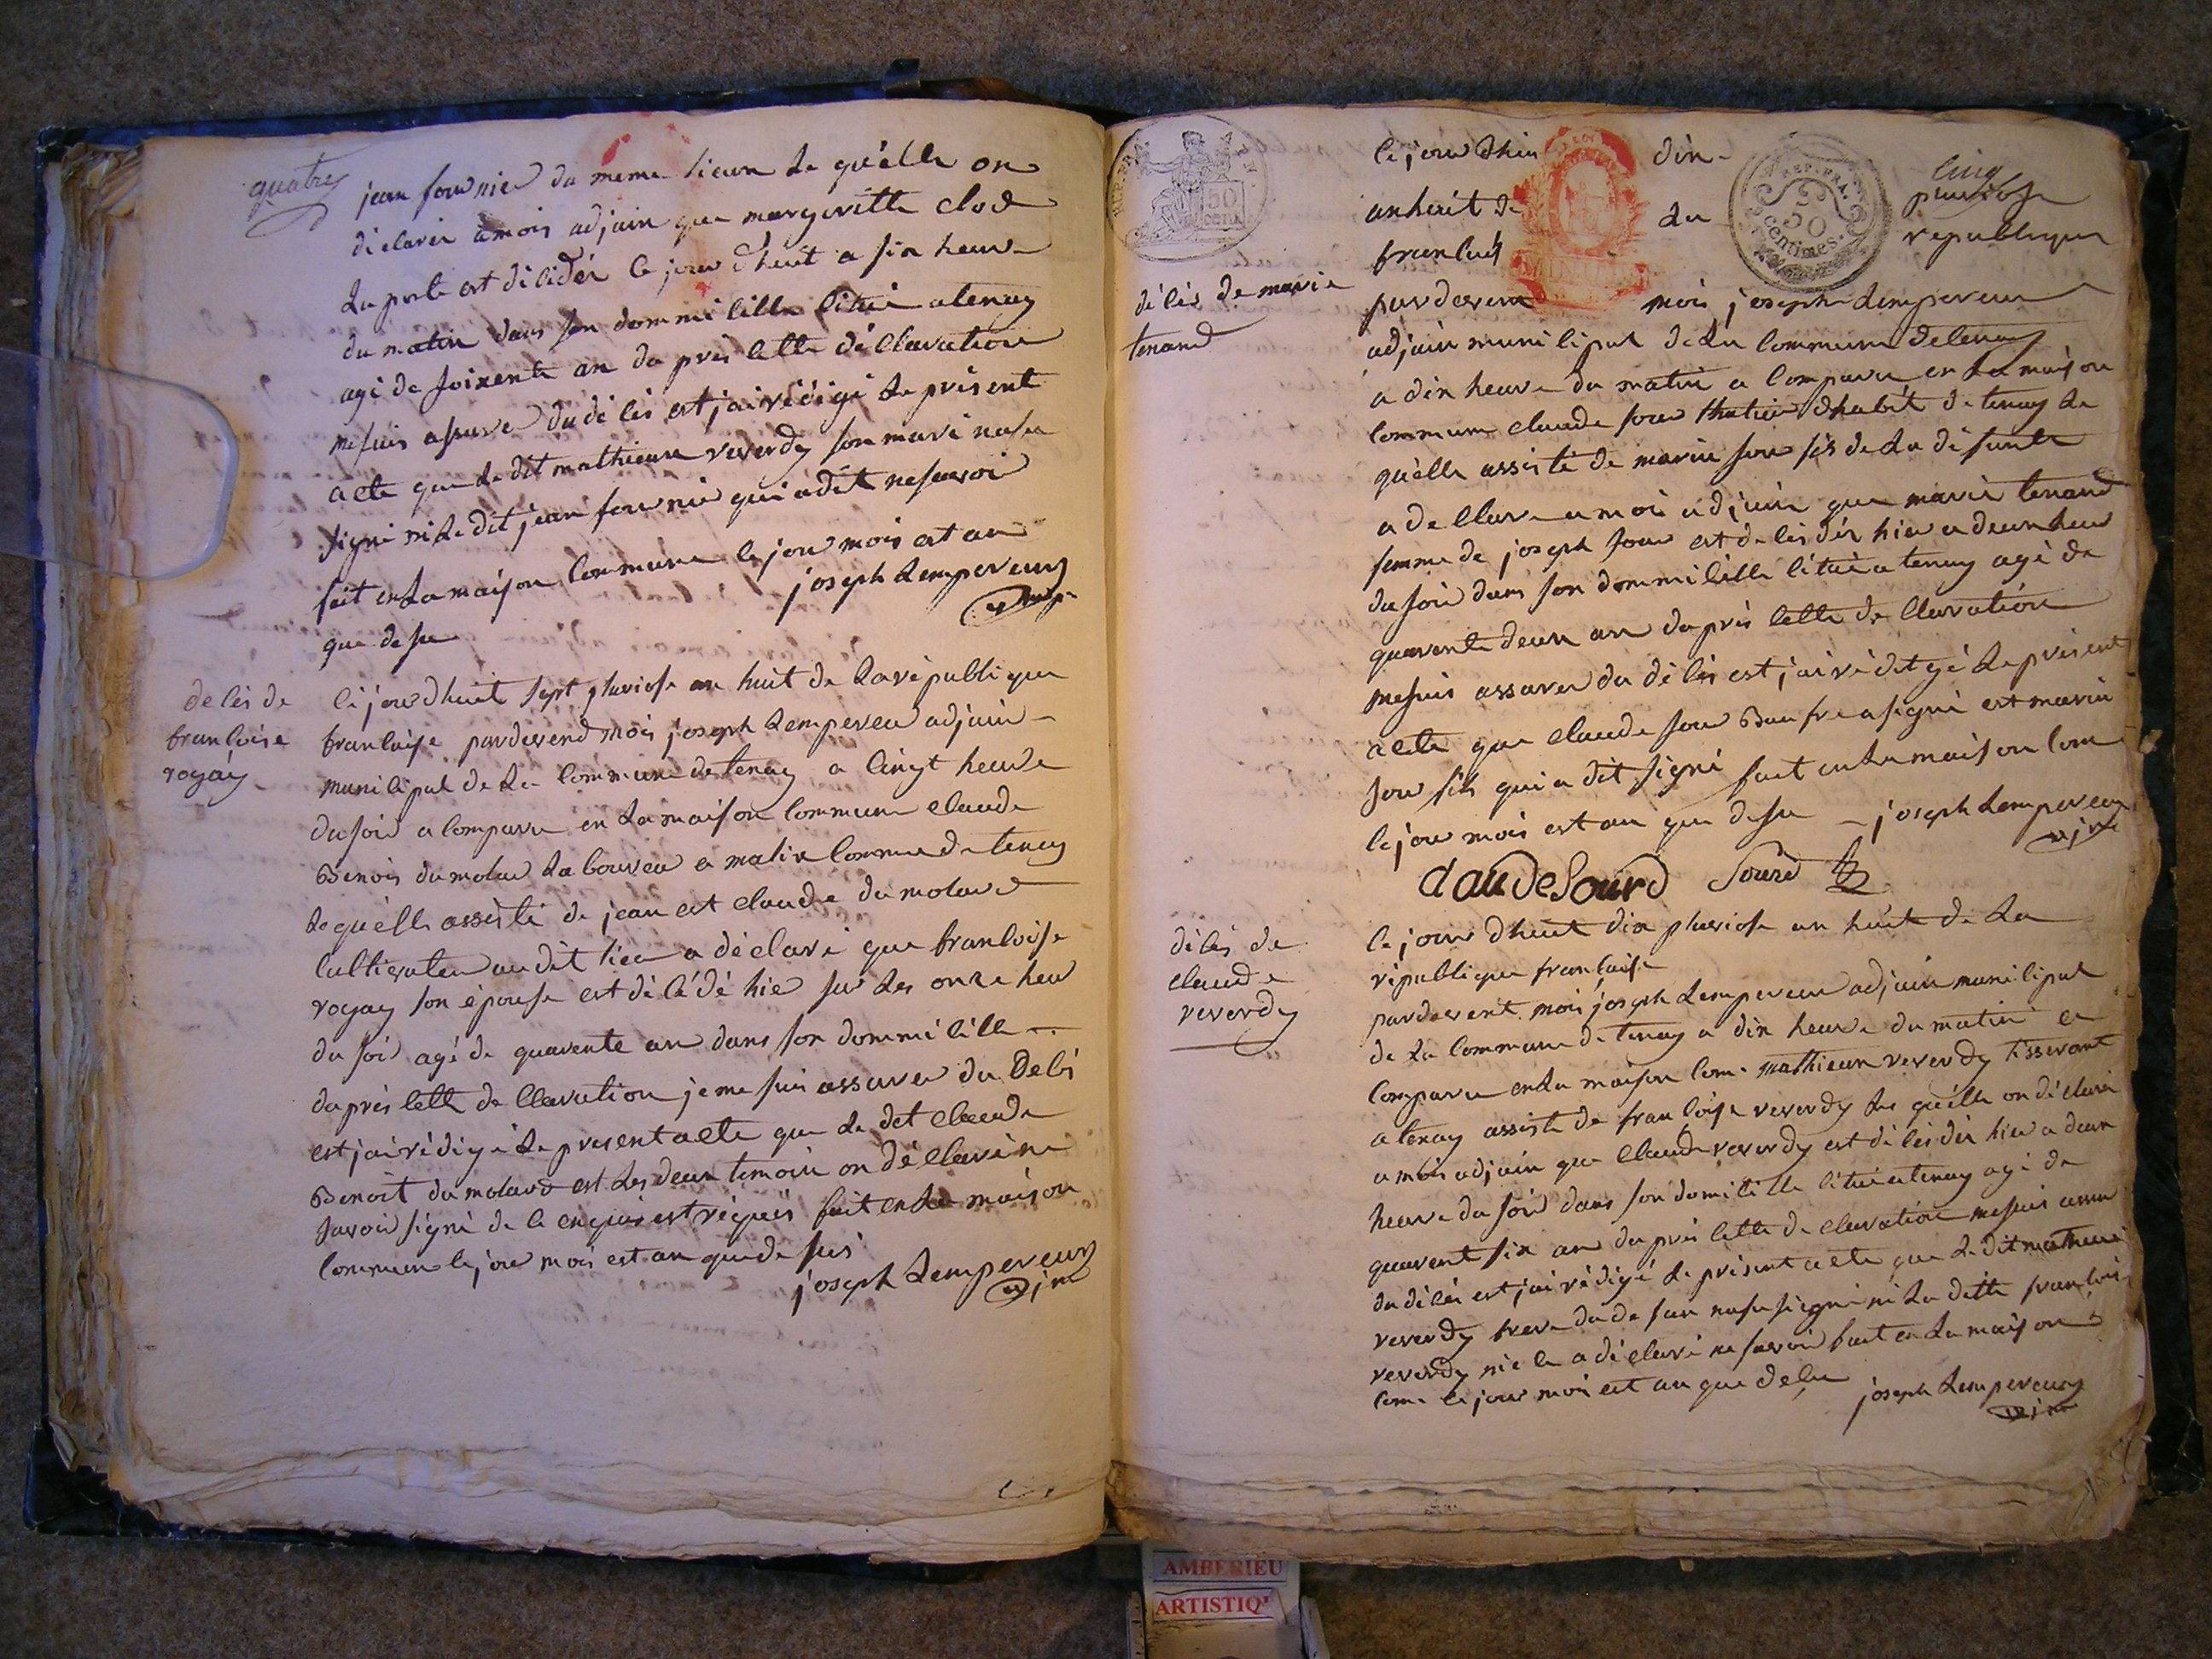 quatre
jean fournier du meme lieux le quelle on
declarer a mois adjoin que margueritte clod
La porte est décédér le jour dhuit a six heure
du matin dans son dommicille citué a tenay
agé de soixente an da près cette déclaration
me suis assuré du décès est jai rédigé le présent
acte que le dit mathieux reverdy son mari na su
signé ni le dit jean fournié qui a dit ne savoir
fait en la maison commune le jour mois est an
que desu
joseph Lempereur
adjn
decès de
francoise
rogay
le jour dhuit sept pluviose an huit de la république
francaise pardevend mois joseph Lempereu adjoin
municipal de La commune de tenay a cinq heure
du soir a comparu en la maison commune claude
Benois dumolar Laboureu a malix commune de tenay
Le quelle assisté de jean est claude du molard
cultivateu au dit lieu a déclaré que francoise
rogay son épouse est décédé hier sur les onze heur
du soir agé de quarente an dans son dommicille
da près cette declaration je me suis assurer du Decès
est jai rédigé Le present acte que Le dit claude
Benoit du molard est Les deux temoin on déclaré ne
savoir signé de ce enquis est réquis fait en La maison
commune le jour mois est an que de sus
joseph Lempereur
adjn
REP. FRA.
50
cent.
REP. FRA.
50
centimes.
cinq
le jour dhui dix pluviose
an huit de La republique
francais
pardevent mois joseph Lempereur
décès de marie
tenand
adjoin municipal de La commune de tenay
a dix heure du matin a comparu en La maison
commune claude sour habit de tenay Le
quelle assisté de marin sour fis de La défunte
a declare a mois adjoin que marie tenand
femme de joseph sour est decédér hier a deux heur
du soir dans son dommicille citué a tenay agé de
quarente deux an da près cette declaration
me suis assurer du décès est jai réditgé Le présent
acte que claude sour a signé est marin
sour fils qui a dit signé fait en La maison com
le jour mois est an que desu joseph Lempereur
adjn
claude Sourd Sourd
décès de
claude
reverdy
le jour dhuit dix pluviose an huit de La
république française
pardevent mois joseph Lempereur adjoin municipal
de La commune de tenay a dix heure du matin a
comparu en La maison com. mathieux reverdy tisserant
a tenay assisté de françoise reverdy Les quelle on déclaré
a mois adjoin que claude reverdy est décédér hier a deux
heure du soir dans son domicille citué a tenay agé de
quarent six an da près cette declaration me suis assur
du décès est jai rédigé Le présent acte que Le dit mathieu
reverdy frere du defun na su signé ni La ditte francois
reverdy a déclaré ne savoir fait en La maison
com. le jour mois est an que desu joseph Lempereur
adjn
AMBERIEU
ARTISTIQ'